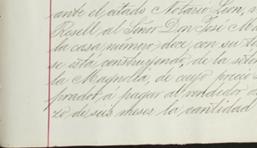 ante el citado Notario Leon, v
Rosell al Señor Don José M
la casa, número doce, con su te
se está construyendo, de la
la Magnolia, de cuyo preci
prador, á pagar al vendedor d
zo de seis meses la cantidad